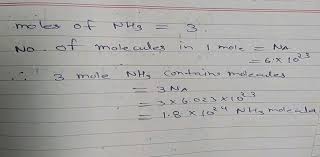 moles of NH3 = 3.
No. of molecules in 1 mole = NA
= 6 × 10^23
∴ 3 mole NH3 contains molecules
= 3 NA
= 3 × 6.023 × 10^23
= 1.8 × 10^24 NH3 molecule